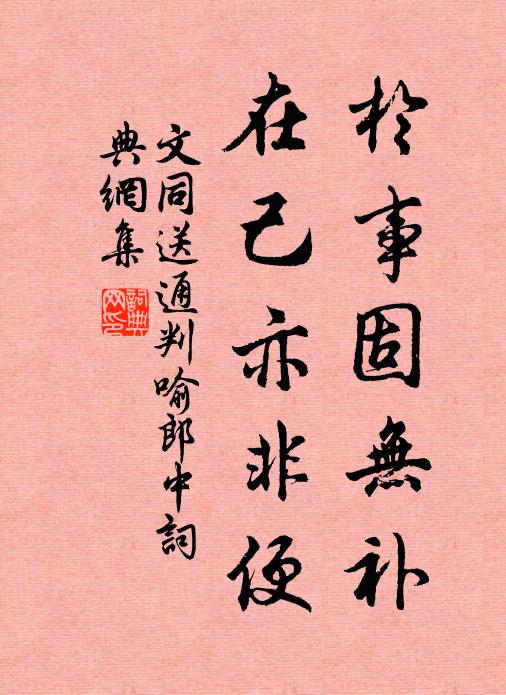 於事固無补
在己亦非便
文同送通判喻郎中詞
典網集
詞典網印